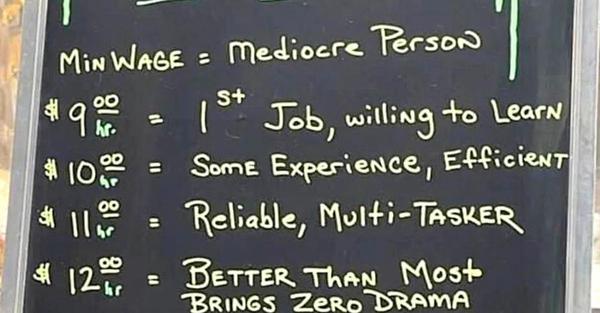 MIN WAGE = Mediocre Person
$9.00 hr. = 1st Job, willing to Learn
$10.00 hr = Some Experience, Efficient
$11.00 hr = Reliable, Multi-TASKER
$12.00 hr = BETTER THAN Most
BRINGS ZERO DRAMA